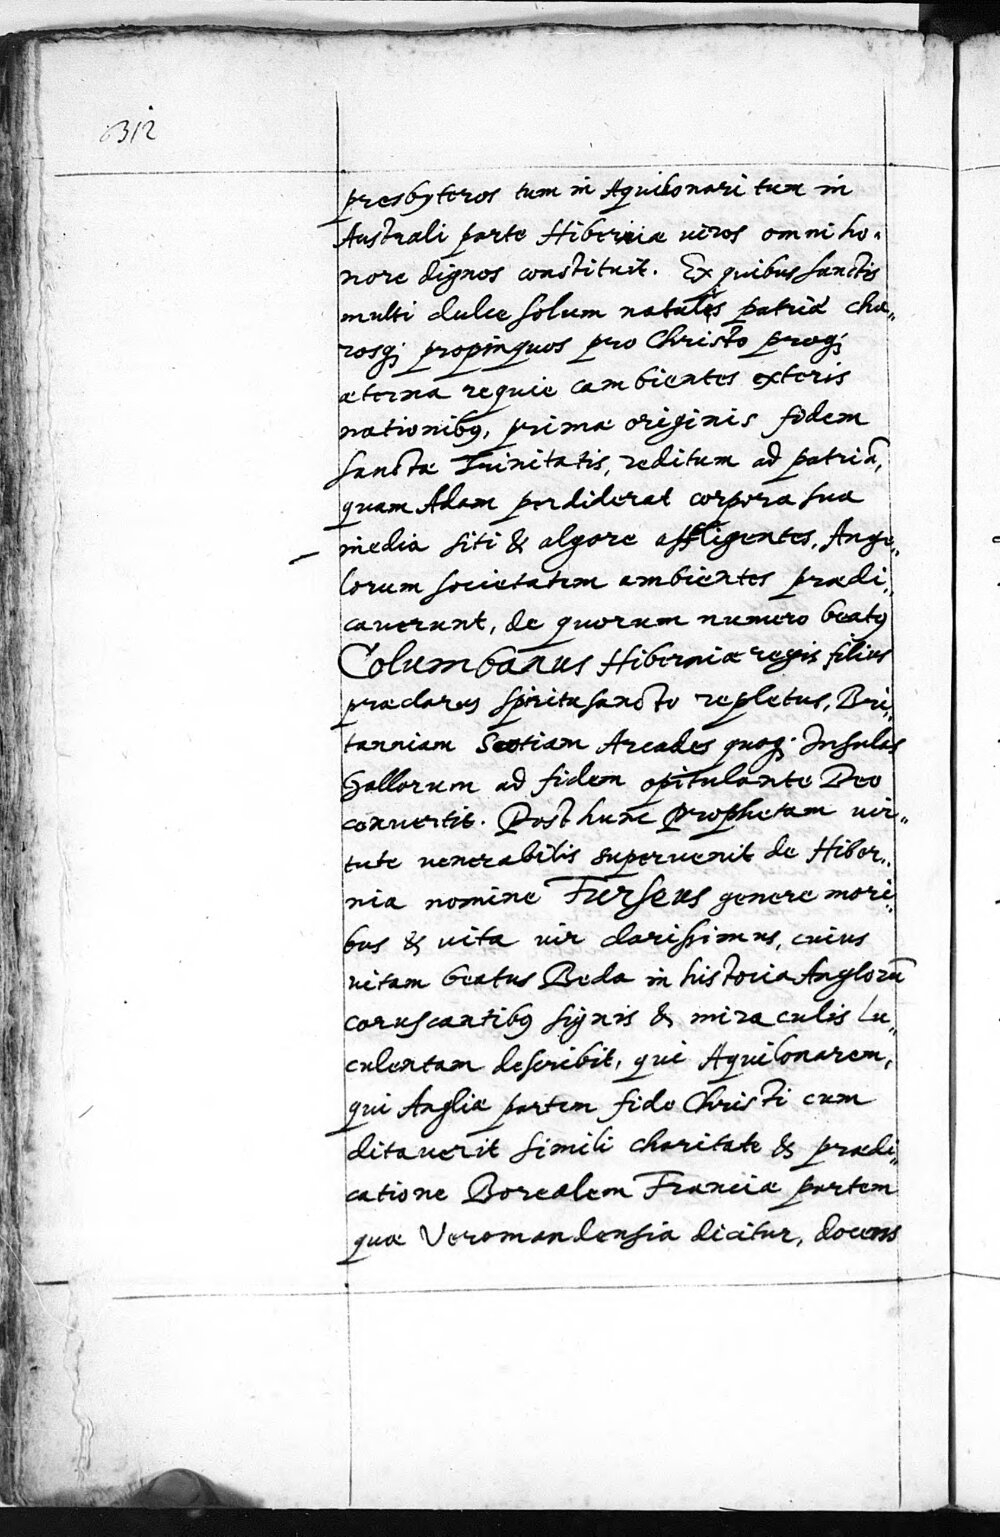 312
presbyteros tum in Aquilonari tum in
Australi parte Hiberniæ viros omni ho-
nore dignos constituit. Ex quibus sancti
multi dulce solum natalis patriæ cha-
rosq; propinquos pro Christo proq;
æterna requie cambientes exteris
nationibꝰ, primæ originis fidem
sanctæ Trinitatis, reditum ad patriã,
quam Adam perdiderat corpora sua
inedia siti & algore affligentes, Ange-
lorum societatem ambientes prædi-
cauerunt, de quorum numero beatꝰ
Columbanus Hiberniæ regis filius
præclarus spiritu sancto repletus, Bri-
tanniam Scotiam Arcades quoq; Insulas
Gallorum ad fidem opitulante Deo
conuertit. Post hunc Prophetam uir-
tute venerabilis superuenit de Hiber-
nia nomine Furseus genere mori-
bus & uita uir clarissimus, cuius
uitam beatus Beda in historia Anglorũ
coruscantibꝰ signis & miraculis lu-
culentam describit, qui Aquilonarem,
qui Angliæ partem fide Christi cum
ditauerit simili charitate & prædi-
catione Borealem Franciæ partem
quæ Veromandensia dicitur, docens